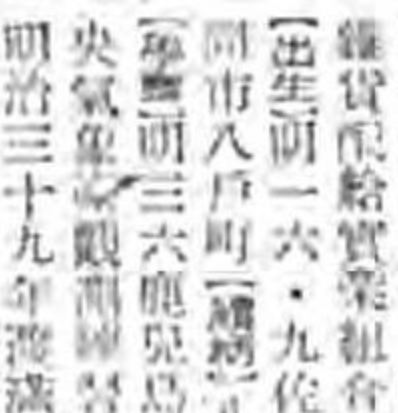 雜貨配給實業組合
【出生】明一六・九佐
同市八戶町【續柄】
【學歷】明三六鹿兒島
央氣象臺觀測
明治三十九年渡滿